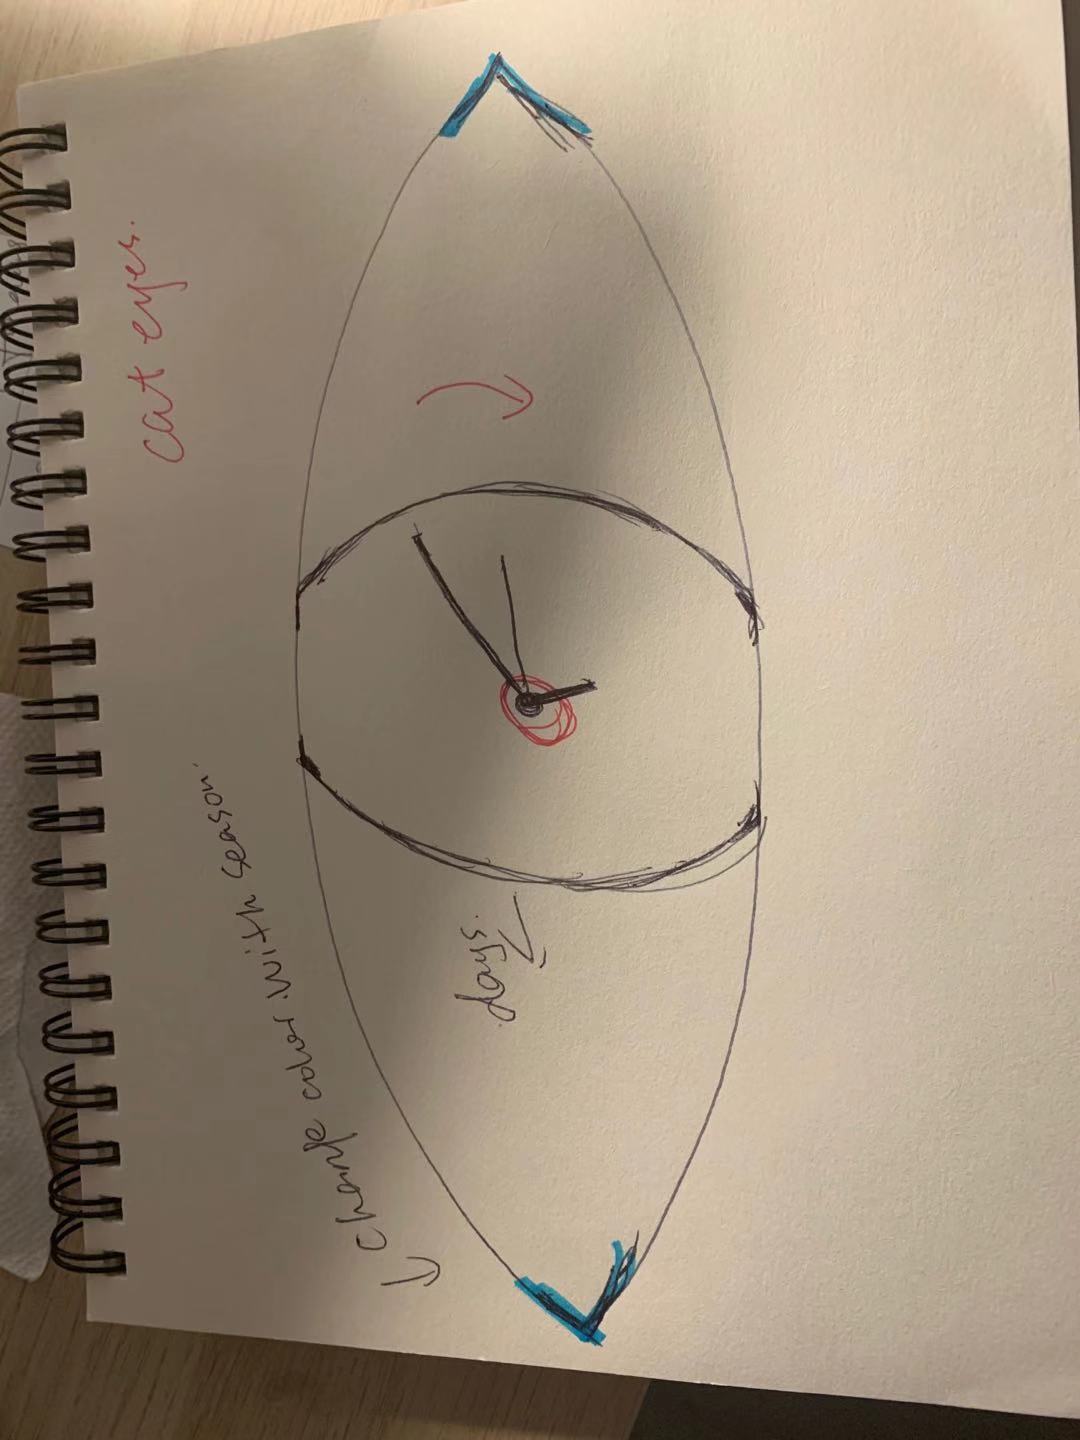 cat eyes.
change color with season.
days.